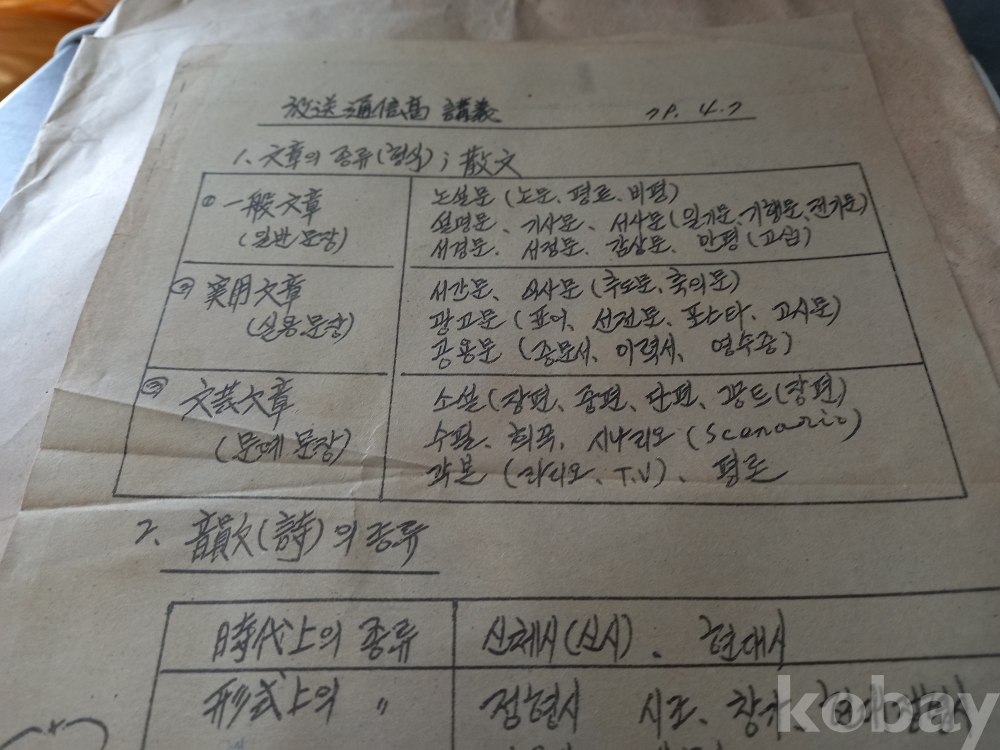 放送通信高 講義 79. 4. 7
1. 文章의 종류(형식) ; 散文
① 一般文章
(일반문장)
논설문 (논문、평론、비평)
설명문、기사문、서사문(일기문、기행문、전기문)
서경문、서정문、감상문、만평(고십)
② 実用文章
(실용문장)
서간문、식사문(추도문、축의문)
광고문 (표어、선전문、포스타、고시문)
공용문 (증문서、이력서、영수증)
③ 文芸文章
(문예문장)
소설(장편、중편、단편、꽁트(장편)
수필、희곡、시나리오(Scenario)
각본 (라디오、T.V)、평론
2. 韻文(詩)의 종류
時代上의 종류
신체시(신시)、현대시
形式上의 〃
정형시 시조、창가、현대정형시
kobay